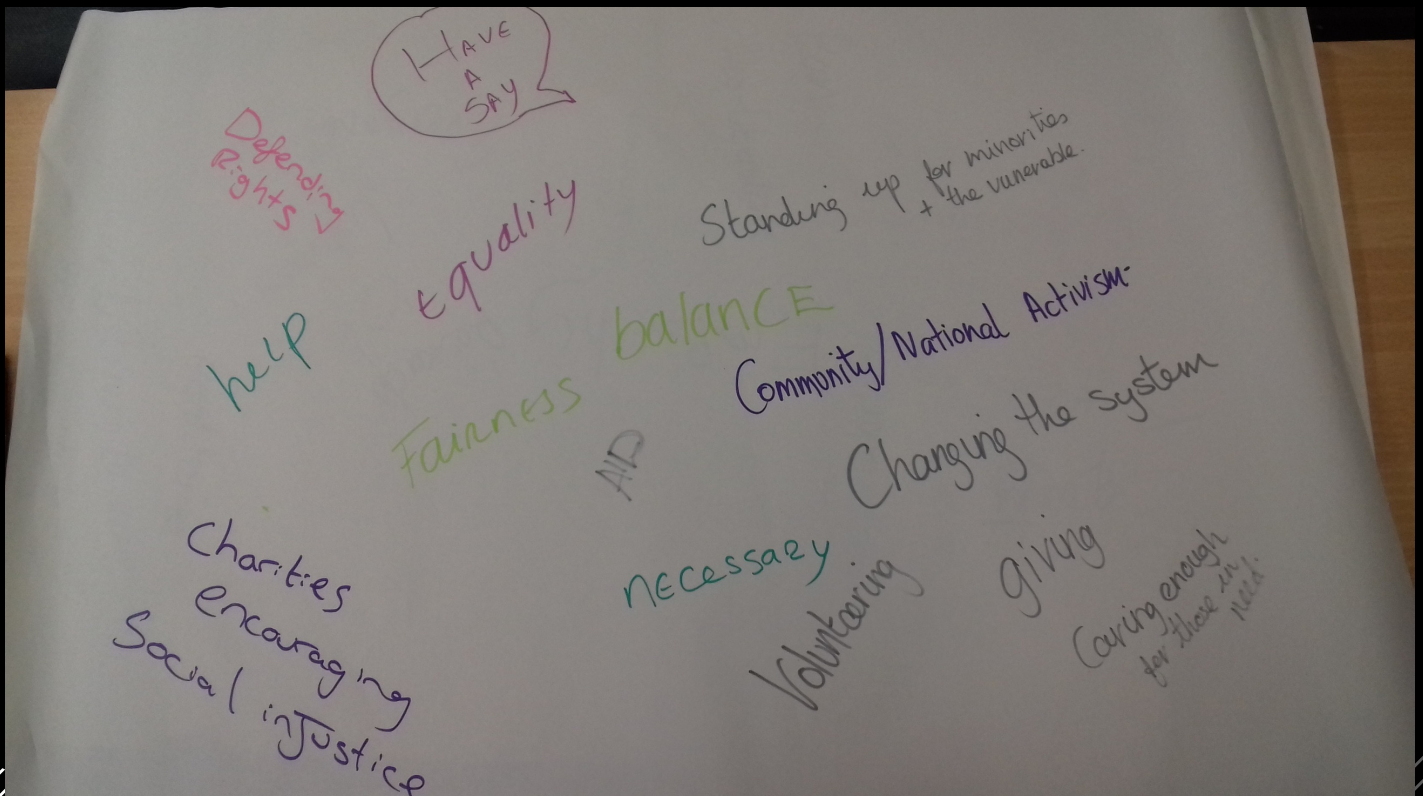 HAVE
A
SAY
Defending
Rights
Standing up for minorities
+ the vunerable.
Equality
balancE
Community/National Activism
help
Fairness
AID
Changing the system
Charities
encouraging
Social inJustice
necessary
Volunteering
giving
Caring enough
for those in
need.